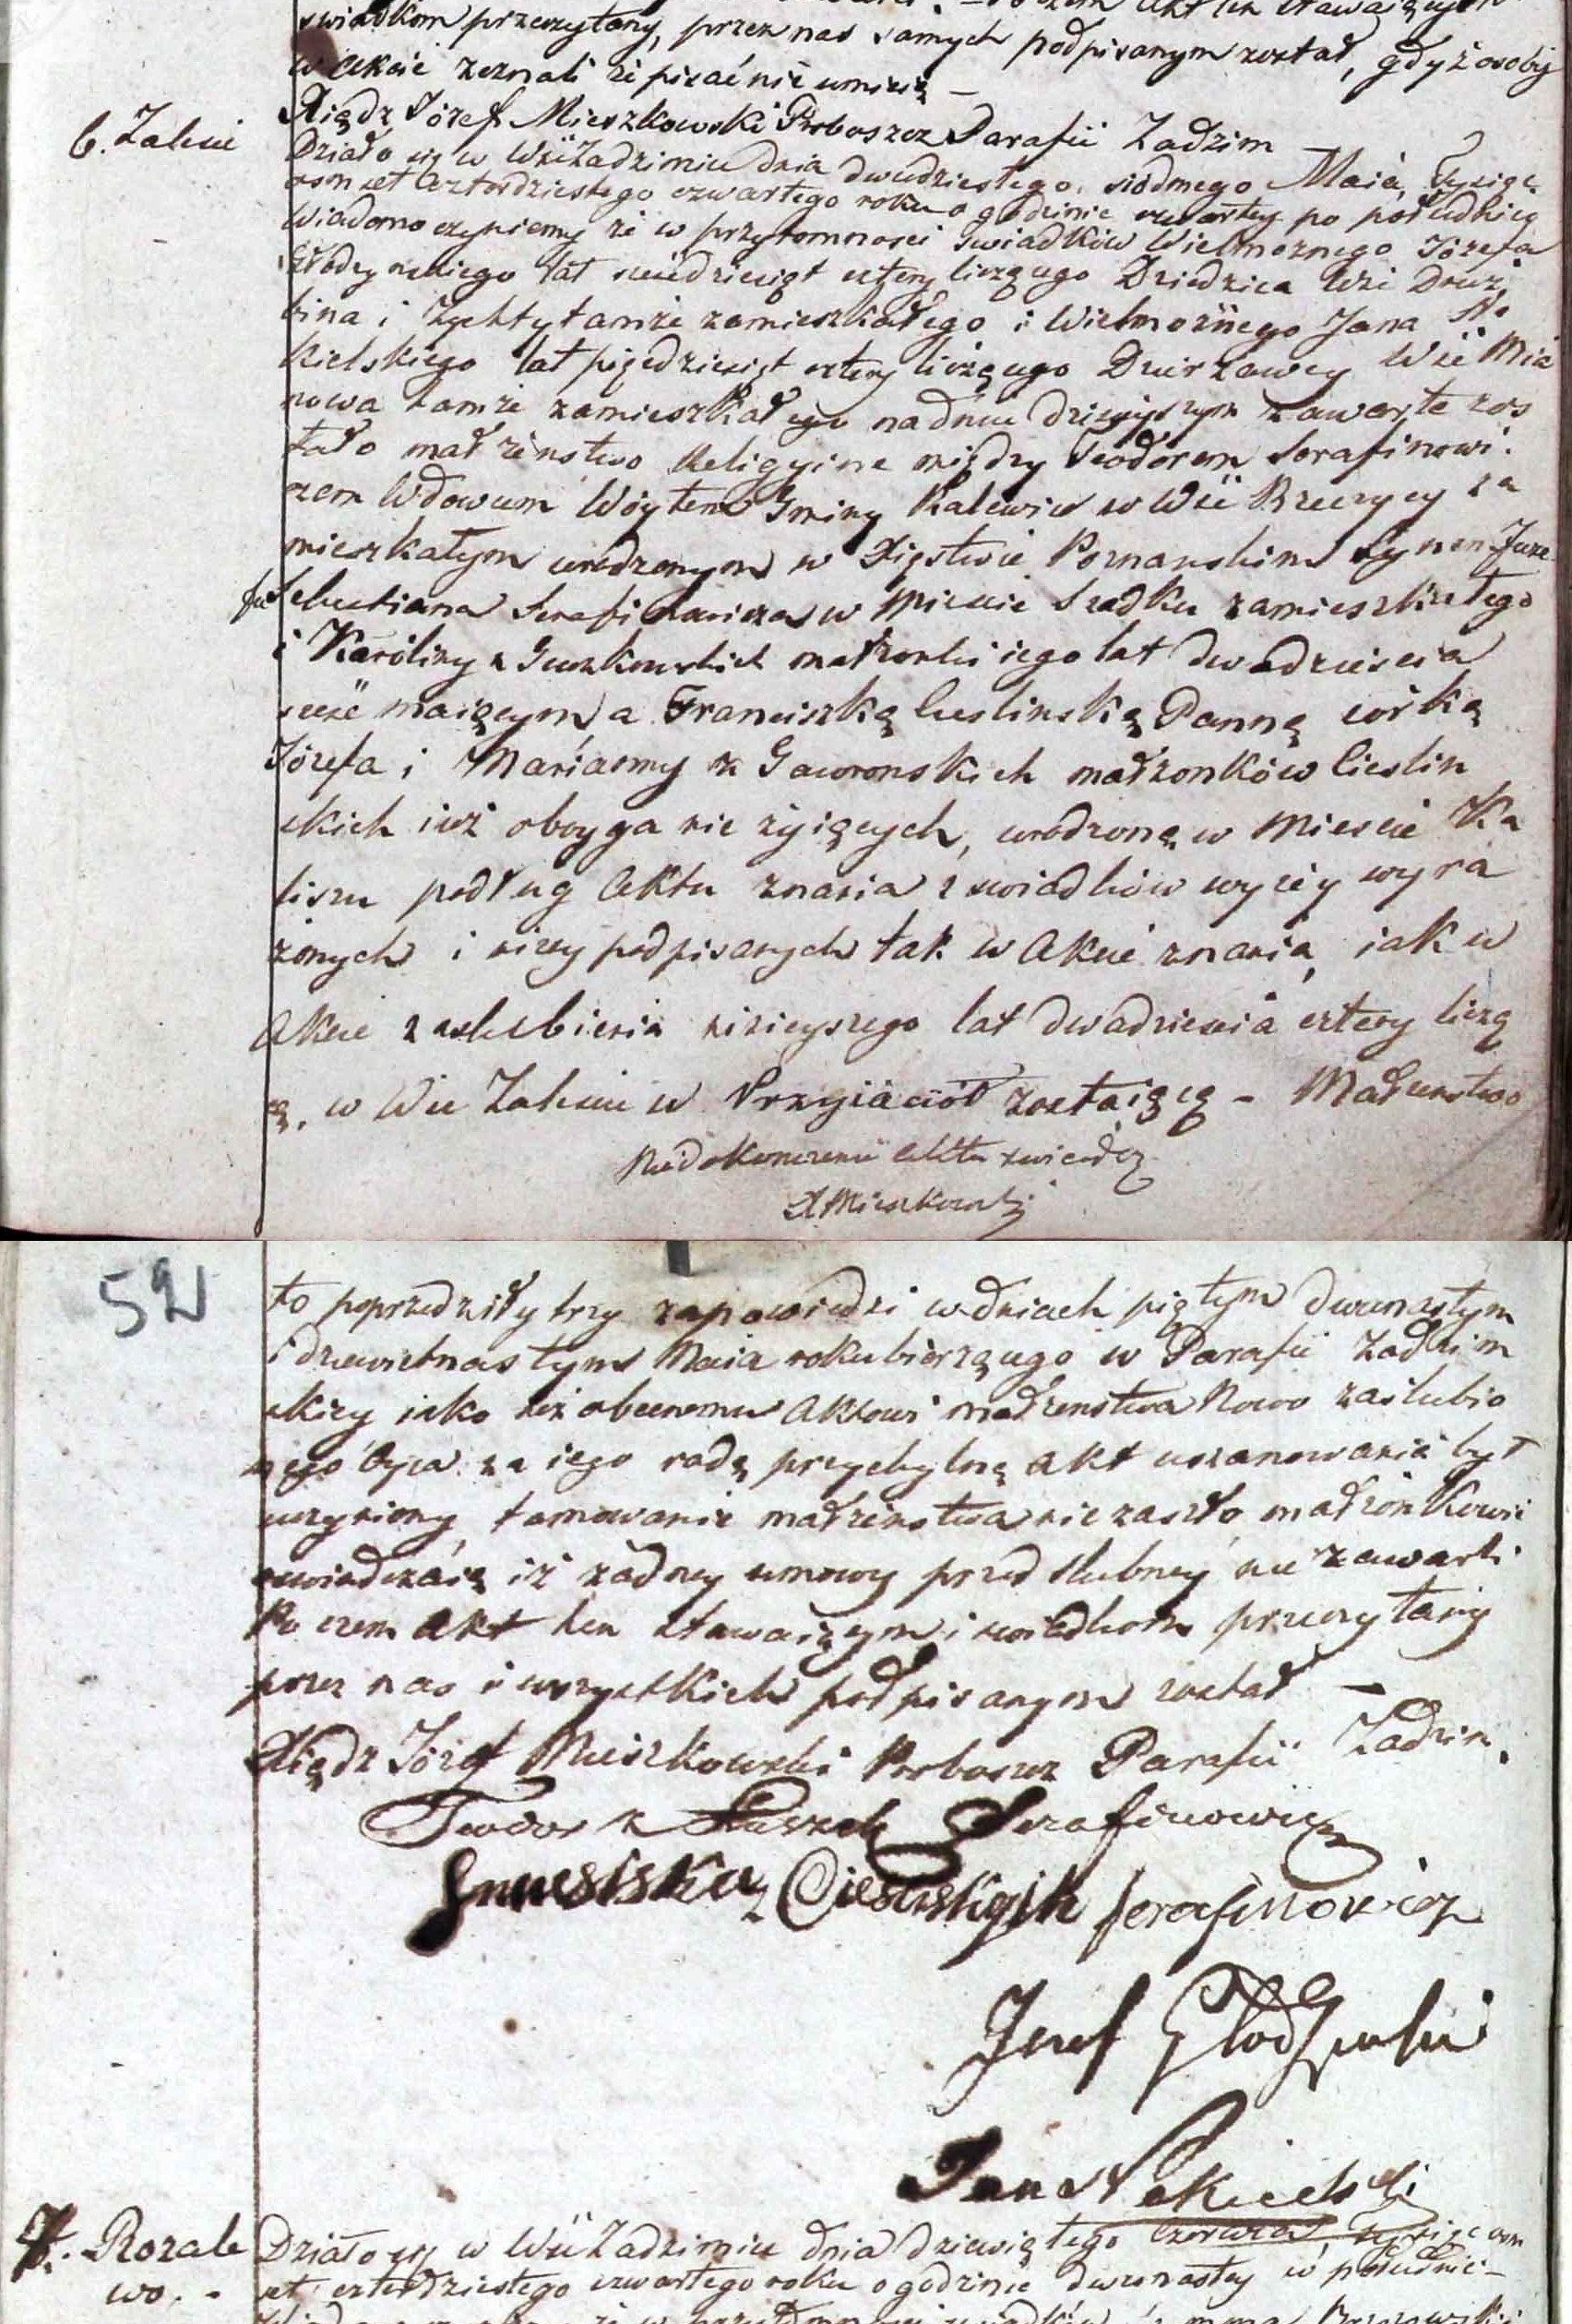 swiadkom przeczytany, przez nas samych podpisanym został, gdyż osoby
w akcie zeznali że pisać nie umieią —
Xiądz Józef Mieszkowski Proboszcz Parafii Zadzim
6. Zalesie
Działo się w Wsi Zadzimiu dnia dwudziestego siódmego Maia, Tysiąc
osmset czterdziestego czwartego roku o godzinie czwartey po południu
Wiadomo czyniemy że w przytomnosci swiadków Wielmoznego Józefa
lat sześdziesiąt cztery liczącego Dziedzica Wsi Druż
bina i Zychty tamże zamieszkałego i Wielmożnego Jana No
kielskiego lat pięcdziesiąt cztery liczącego Dzierzawcy Wsi Mia
nowa tamże zamieszkałego na dniu dzisieyszym zawarte zos
tało małżeństwo Religyine między Teodorem Serafinowi
zem Wdowcem Wóytem Gminy Kalewice w Wsi Brzezycy za
mieszkałym urodzonym w Xięstwie Poznanskim Synem Juze
fa Sebestiana Serafinowicza w Miescie Szadku zamieszkałego
i Karoliny z małzonki iego lat dwadziescia
szesć maiącym, a Franciszką Cieslinską Panną córką
Józefa i Marianny z Gaworonskich małzonków Cieslin
skich iuż oboyga nie zyiących, urodzoną w Miescie Ka
liszu podług Aktu znania i swiadków wyżey wyra
żonych i niżey podpisanych tak w Akcie znania, iak w
Akcie zaslubienia ninieyszego lat dwadziescia cztery liczą
cą, w Wsi Zalesiu u Przyiaciół zostaiącą – Małzenstwo
Niedokonczenie Aktu swiadczę
X Mieszkowski
52
to poprzedziły trzy zapowiedzi w dniach piątym dwunastym
i dziewietnastym Maia roku bierzącego w Parafii Zadzim
skiey iako też obecnemu Aktowi małzenstwa Nowo zaslubio
nego Oyca za iego radą przychylną akt uszanowania był
uczyniony, tamowanie małzeństwa nie zaszło małzonkowie
oswiadczaią iż żadney umowy przedslubney nie zawarli
Po czem Akt ten stawaiącym i swiadkom przeczytany
przez nas i wszystkich podpisanym został —
Xiądz Józef Mieszkowski Proboszcz Parafii Zadzim.
Teodor Serafinowicz
z Cieslinskych Serafinowicz
Jozef
Jan Nokielski
7. Rozale
wo. -
Działo się w Wsi Zadzimiu dnia dziewiątego Czerwca, Tysiąc osm
set czterdziestego czwartego roku o godzinie dwunastey w południe –